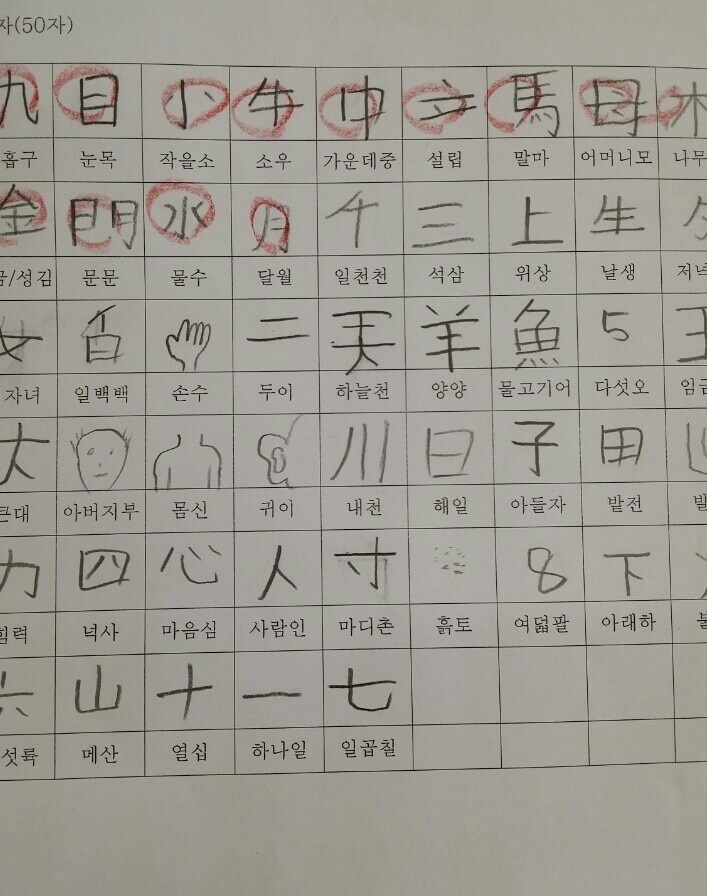 자(50자)
九 目 小 牛 中 立 馬 母 木
홉구 눈목 작을소 소우 가운데중 설립 말마 어머니모 나무
金 門 水 月 千 三 上 生 夕
금/성김 문문 물수 달월 일천천 석삼 위상 날생 저녁
女 百 二 天 羊 魚 5 王
자녀 일백백 손수 두이 하늘천 양양 물고기어 다섯오 임금
大 川 日 子 田
큰대 아버지부 몸신 귀이 내천 해일 아들자 밭전
力 四 心 人 寸 8 下
힘력 넉사 마음심 사람인 마디촌 흙토 여덟팔 아래하
六 山 十 一 七
섯륙 메산 열십 하나일 일곱칠